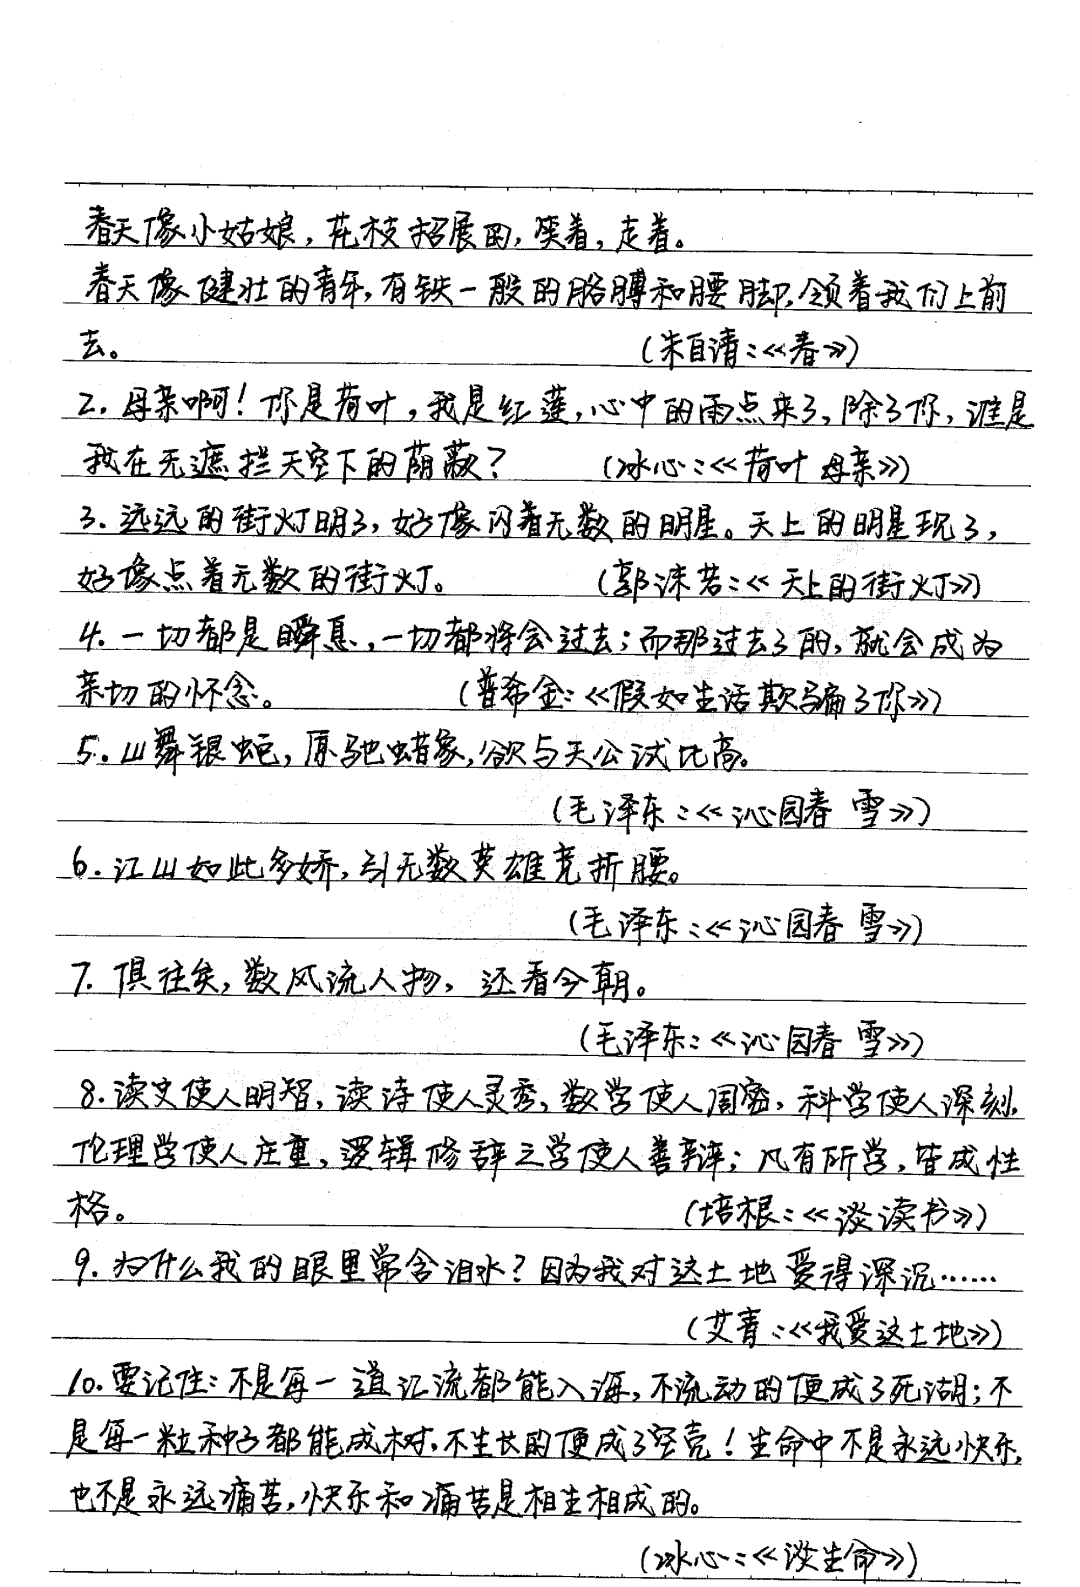 春天像小姑娘，花枝招展的，笑着，走着。
春天像健壮的青年，有铁一般的胳膊和腰脚，领着我们上前
去。 (朱自清：《春》)
2. 母亲啊！你是荷叶，我是红莲，心中的雨点来了，除了你，谁是
我在无遮拦天空下的荫蔽？ (冰心：《荷叶 母亲》)
3. 远远的街灯明了，好像闪着无数的明星。天上的明星现了，
好像点着无数的街灯。 (郭沫若：《天上的街灯》)
4. 一切都是瞬息，一切都将会过去；而那过去了的，就会成为
亲切的怀念。 (普希金：《假如生活欺骗了你》)
5. 山舞银蛇，原驰蜡象，欲与天公试比高。
(毛泽东：《沁园春 雪》)
6. 江山如此多娇，引无数英雄竞折腰。
(毛泽东：《沁园春 雪》)
7. 俱往矣，数风流人物，还看今朝。
(毛泽东：《沁园春 雪》)
8. 读史使人明智，读诗使人灵秀，数学使人周密，科学使人深刻，
伦理学使人庄重，逻辑修辞之学使人善辩；凡有所学，皆成性
格。 (培根：《谈读书》)
9. 为什么我的眼里常含泪水？因为我对这土地爱得深沉……
(艾青：《我爱这土地》)
10. 要记住：不是每一道江流都能入海，不流动的便成了死湖；不
是每一粒种子都能成树，不生长的便成了空壳！生命中不是永远快乐，
也不是永远痛苦，快乐和痛苦是相生相成的。
(冰心：《谈生命》)